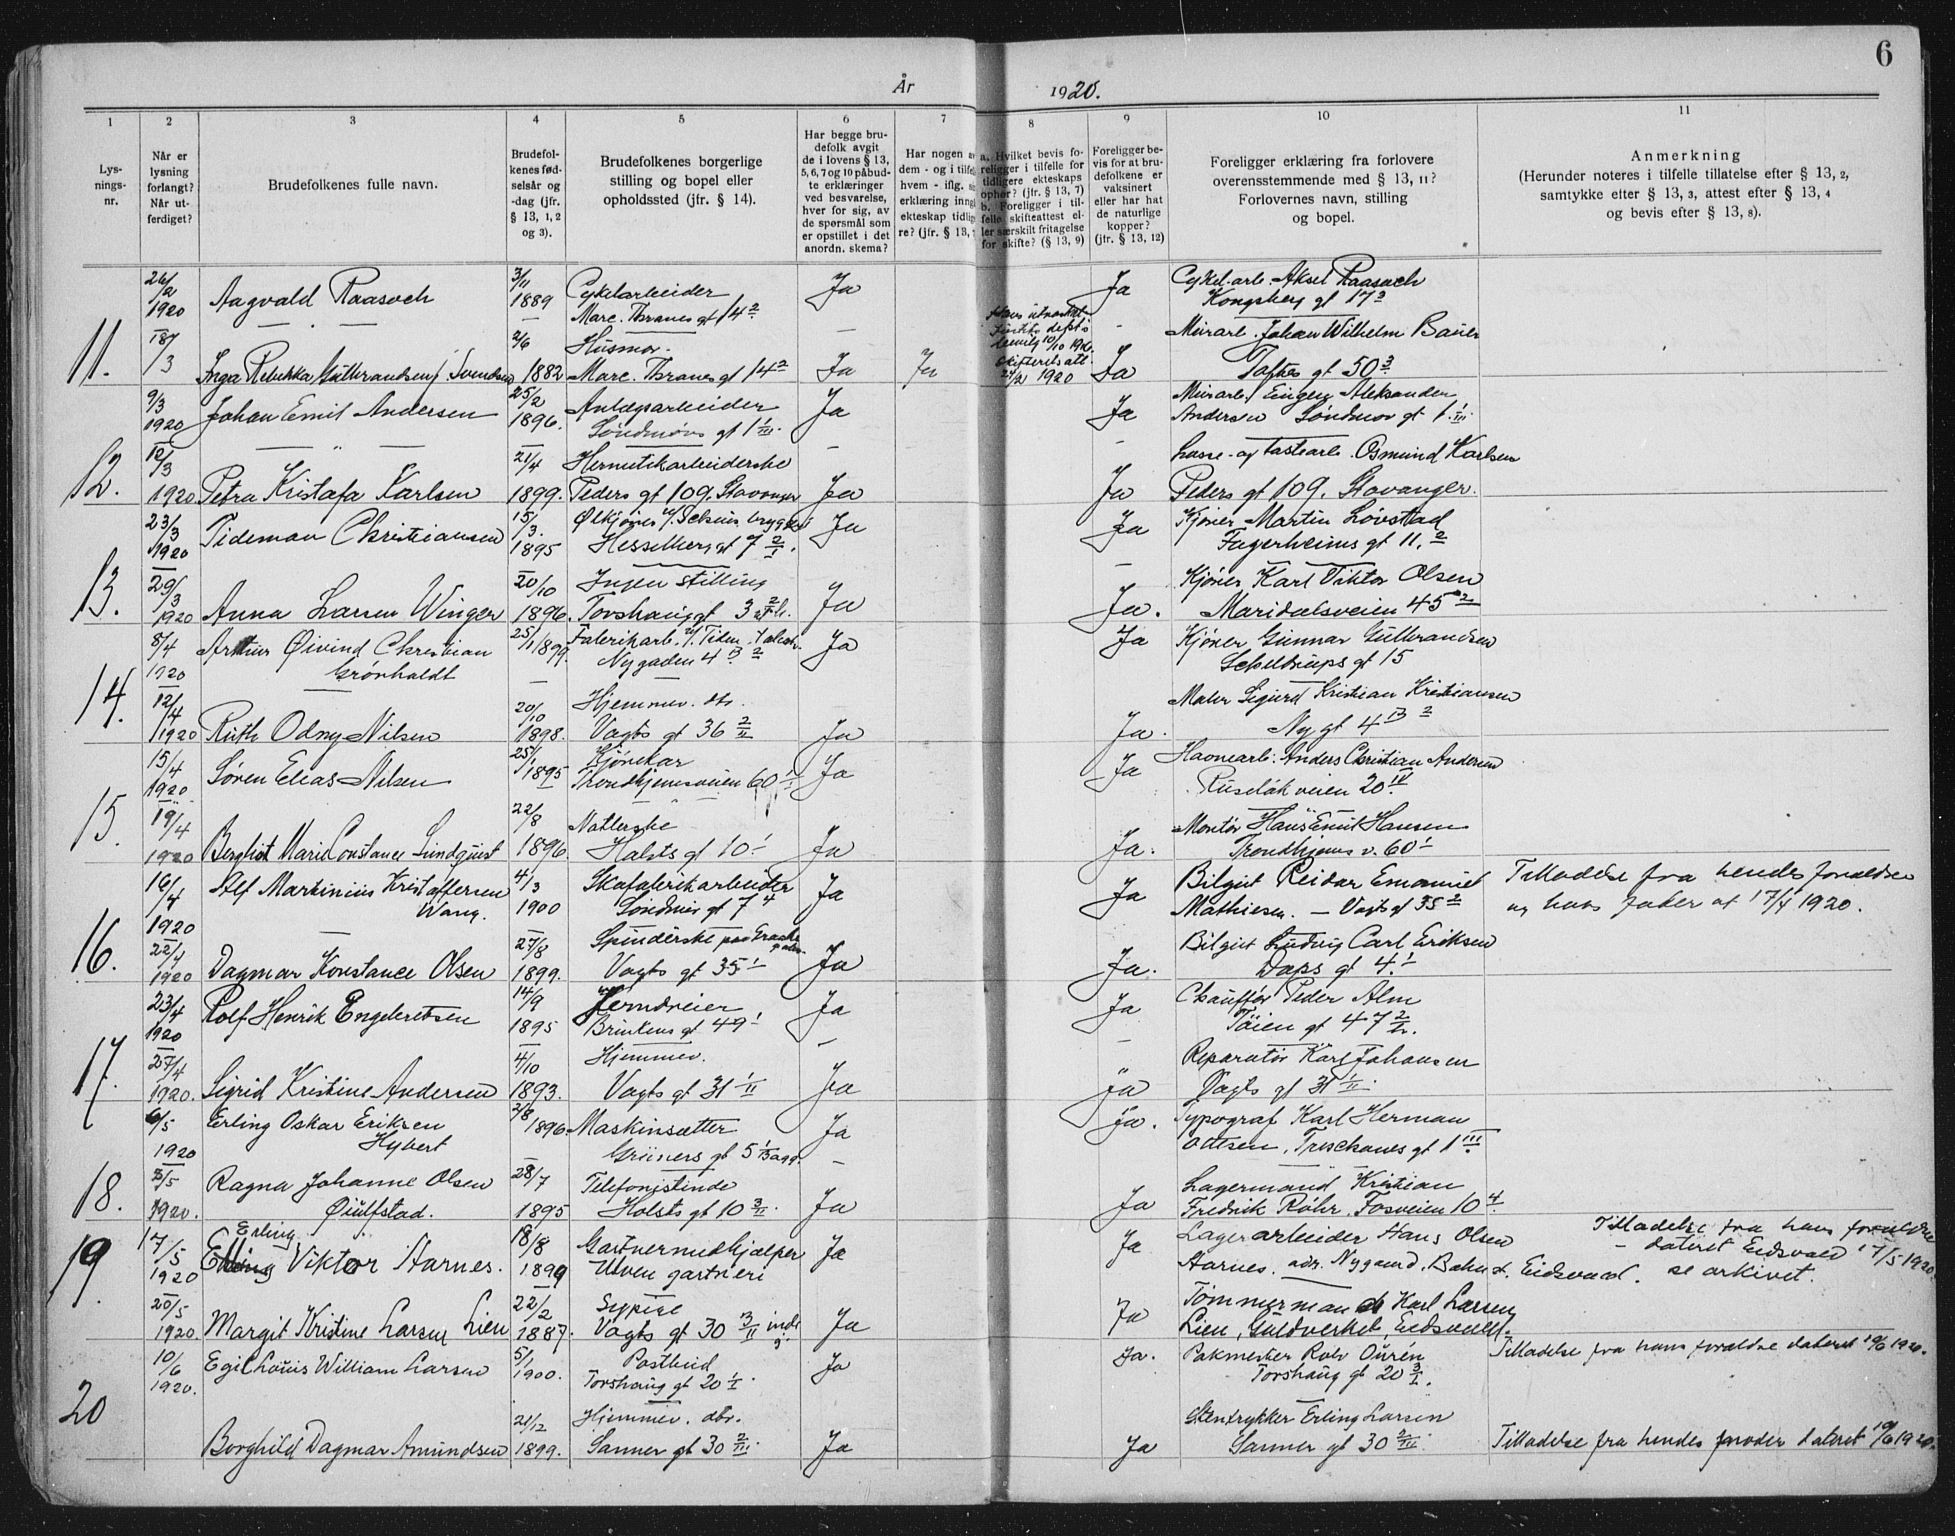 6
År 1920.
1 2 3 4 5 6 7 8 9 10 11
Lys-
nings-
nr.
Når er
lysning
forlangt?
Når ut-
ferdiget?
Brudefolkenes fulle navn.
Brudefol-
kenes fød-
selsår og
-dag (jfr.
§ 13, 1, 2
og 3).
Brudefolkenes borgerlige
stilling og bopel eller
opholdssted (jfr. § 14).
Har begge bru-
defolk avgit
de i lovens § 13,
5, 6, 7 og 10 påbud-
te erklæringer
ved besvarelse,
hver for sig, av
de spørsmål som
er opstillet i det
anordn. skema?
Har nogen av
dem - og i tilfe
hvem - iflg. s
erklæring inng
ekteskap tidlig
re? (jfr. § 13,
a. Hvilket bevis fo-
religger i tilfelle for
tidligere ekteskaps
ophør? (jfr. § 13, 7)
b. Foreligger i til-
felle skifteattest el-
ler særskilt fritagelse
for skifte? (§ 13, 9)
Foreligger be-
vis for at bru-
defolkene er
vaksinert
eller har hat
de naturlige
kopper?
(jfr. § 13, 12)
Foreligger erklæring fra forlovere
overensstemmende med § 13, 11?
Forlovernes navn, stilling
og bopel.
Anmerkning
(Herunder noteres i tilfelle tillatelse efter § 13, 2,
samtykke efter § 13, 3, attest efter § 13, 4
og bevis efter § 13, 8).
11.
26/2 1920
Aagvald Raasoch
3/11 1889
Cykelarbeider
Marc. Thranes gt 14 2
Ja
Ja
Cykel.arb. Aksel Raasoch
Kongsberg gt 17 3
18/3
Inga Rebekka Gulbrandsen f. Svendsen
2/6 1882
Husmor.
Marc. Thranes gt 14 2
Ja
Ja
10/10 1916.
Skifteretsatt.
1920
Ja
Murarb. Johan Wilhelm Bauer
Toftes gt 50 3
12.
9/3 1920
Johan Emil Andersen
25/2 1896.
Anlægsarbeider
Søndmørs gt 1 1/III.
Ja
Ja
Murarb. Aleksander
Andersen Søndmør gt 1 1/III.
12/3 1920
Petra Kristofa Karlsen
21/4 1899.
Hermetikarbeiderske
Peders gt 109. Stavanger
Ja
Ja
Losse- og lastearb. Osmund Karlsen
Peders gt 109. Stavanger.
13.
23/3 1920
Tideman Christiansen
15/3. 1895
Ølkjører v/. Schous bryggeri
Hesselberg gt 7 2/I.
Ja
Ja
Kjører Martin Løvstad
Fagerheims gt 11. 2
29/3 1920
Anna Larsen Winger
20/10 1896.
Ingen stilling
Torshaug gt 3
Ja
Ja.
Kjører Karl Viktor Olsen
Maridalsveien 45 2
14.
8/4 1920
Arthur Øivind Christian
Grønholdt
25/1 1899.
Fabrikarb. v/. Tiden
Nygaden 4 B 2
Ja
Ja
Kjører Gunnar Gulbrandsen
Scheldrups gt 15
12/4 1920
Ruth Odny Nilsen
20/10 1898.
Hjemmev. dtr.
Vogts gt 36 2/II
Ja
Ja.
Maler Sigurd Kristian Kristiansen
Ny gt 4 B 2
15.
15/4 1920
Søren Elias Nilsen
25/1 1895
Kjørekar
Trondhjemsveien 60 1/I
Ja
Ja
Havnearb. Anders Christian Andersen
Ruseløkveien 20 IV.
19/4 1920
Bergliot Marie Constance Lundquist
22/8 1896.
Natterske
Holsts gt 10 1
Ja
Ja.
Montør Hans Emil Hansen
Trondhjems v. 60 1
16.
16/4 1920
Alf Martinius Kristoffersen
Wang.
4/3 1900
Skofabrikarbeider
Søndmør gt 7 4
Ja
Ja
Bilgut Reidar Emanuel
Mathiesen. — Vogts gt 35 2
Tilladelse fra hendes forældre
og hans fader af 17/4 1920.
22/4 1920
Dagmar Konstance Olsen
27/8 1899.
Spinderske paa
Vogts gt 35 1
Ja
Ja.
Bilgut Ludvig Carl Eriksen
Daps gt 4. 1
17.
23/4 1920
Rolf Henrik Engebretsen
14/9 1895
Jerndreier
Brinkens gt 49 1
Ja
Ja
Chauffør Peder Alm
Tøien gt 47
27/4 1920.
Sigrid Kristine Andersen
4/10 1893.
Hjemmev.
Vogts gt 31 1/II
Ja
Ja
Reparatør Karl Johansen
Vogts gt 31 1/II.
18.
6/5 1920
Erling Oskar Eriksen
Hybert
2/8 1896
Maskinsætter
Grüners gt 5 1/Bagg.
Ja
Ja.
Typograf Karl Herman
Ottesen, Treschows gt 1 III
/5 1920.
Ragna Johanne Olsen
Øiulfstad.
28/7 1895
Telefonistinde
Holsts gt 10 3/II.
Ja
Ja
Lagermand Kristian
Fredrik Rohr. Fosveien 10 4.
19.
17/5 1920
Erling
Viktor Aarnes.
18/8 1899
Gartnermedhjælper
Ulven gartneri
Ja
Ja
Lagerarbeider Hans Olsen
Aarnes. adr. Nygaard. Bahn st. Eidsvold. se arkivet.
Tilladelse fra hans forældre
– dateret Eidsvold 17/5 1920.
20/5 1920.
Margit Kristine Larsen Lien
22/2 1887.
Sypige
Vogts gt 30 3/II inde g.
Ja
Ja
Tømmermand Karl Larsen
Lien, Guldverket, Eidsvold.
20
10/6 1920.
Egil Louis William Larsen
5/1 1900.
Postbud
Torshaug gt 20 1/I.
Ja
Ja.
Pakmester Rolv Ouren
Torshaug gt 20 3/I.
Tilladelse fra hans forældre dateret 10/6 1920.
Borghild Dagmar Amundsen
21/12 1899.
Hjemmev. dtr.
Sanner gt 30 2/III.
Ja
Ja
Stentrykker Erling Larsen
Sanner gt 30 2/III
Tilladelse fra hendes moder dateret 10/6 1920.